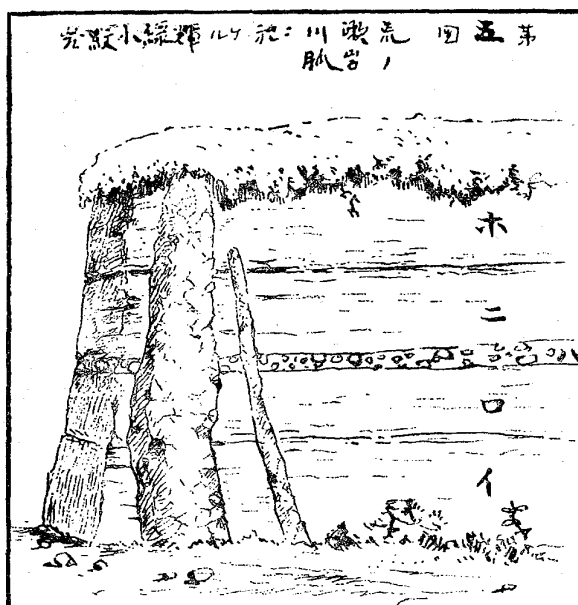 第五図 荒瀬川ニ於ケル輝緑小紋岩
ノ岩脈
ホ
ニ
ロ
イ